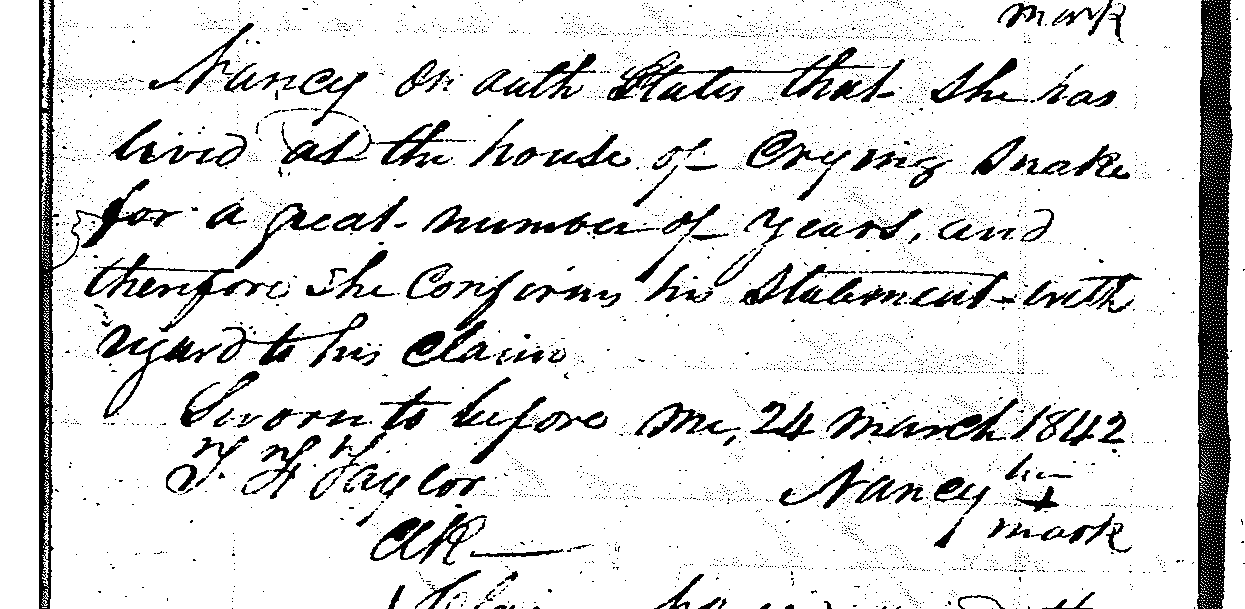 mark
Nancy on oath States that She has
lived at the house of Crying Snake
for a great number of years, and
therefore She Confirms his Statement with
regard to his Claim
Sworn to before me, 24 March 1842
Taylor Nancy her
+
Clk mark